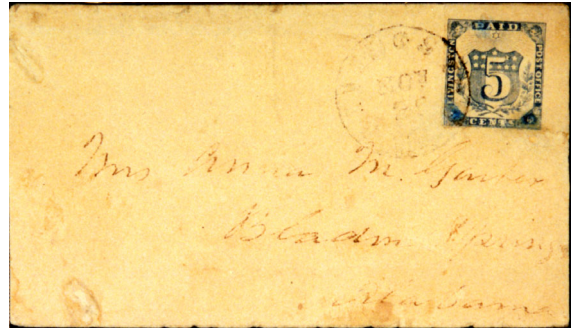 PAID
LIVINGSTON
POST OFFICE
5
CENTS
NOV
Mrs Anna M.
Bladon Springs
Alabama